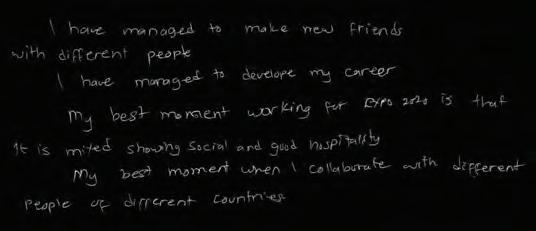 I have managed to make new friends
with different people
I have managed to develope my career
My best moment working for EXPO 2020 is that
It is mixed showing social and good hospitality
My best moment when I collaborate with different
people of different countries